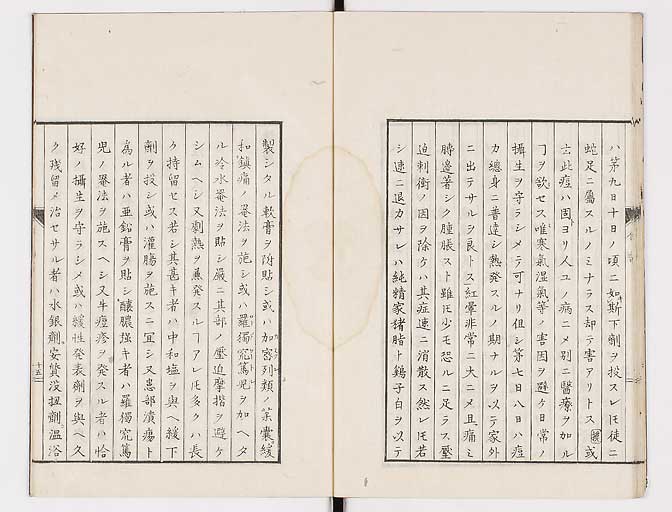 ハ第九日十日ノ頃ニ如斯下劑ヲ投スレ𪜈徒ニ
蛇足ニ屬スルノミナラス却テ害アリトス 或
云此痘ハ固ヨリ人工ノ病ニメ別ニ醫療ヲ加ル
ヿヲ欲セス唯寒氣温氣等ノ害因ヲ避ケ日常ノ
攝生ヲ守ラシメテ可ナリ但シ第七日八日ハ痘
力總身ニ普達シ熱発スルノ期ナルヲ以テ家外
ニ出テサルヲ良トス紅暈非常ニ大ニメ且痛ミ
時邊著シク腫脹スト雖𪜈少モ恐ルニ足ラス壓
迫刺衝ノ因ヲ除ケハ其症速ニ消散ス然レ𪜈若
シ速ニ退カサレハ純精家猪脂ト鷄子白ヲ以テ
製シタル軟膏ヲ附貼シ或ハ加密列類ノ茱囊緩
和鎮痛ノ罨法ヲ施シ或ハ羅獨寃篤兒ヲ加ヘタ
ル冷水罨法ヲ貼シ嚴ニ其部ノ壓迫摩揩ヲ避ケ
シムヘシ又劇熱ヲ兼発スルヿアレ𪜈多クハ長
ク持留セス若シ其甚キ者ハ中和塩ヲ與ヘ緩下
劑ヲ投シ或ハ灌腸ヲ施スニ冝シ又患部潰瘍ト
為ル者ハ亜鉛膏ヲ貼シ釀膿强キ者ハ羅獨寃篤
兒ノ罨法ヲ施スヘシ又牛痘疹ヲ発スル者ハ恰
好ノ攝生ヲ守ラシメ或ハ緩性発表劑ヲ與ヘ久
ク残留メ治セサル者ハ水銀劑安質没扭劑温浴
十五